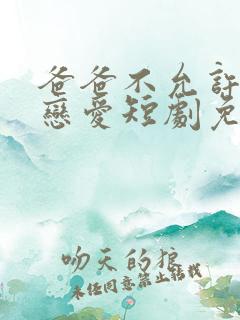 爸爸不允許
戀愛短劇免
吻天的狼
未经同意禁止转载